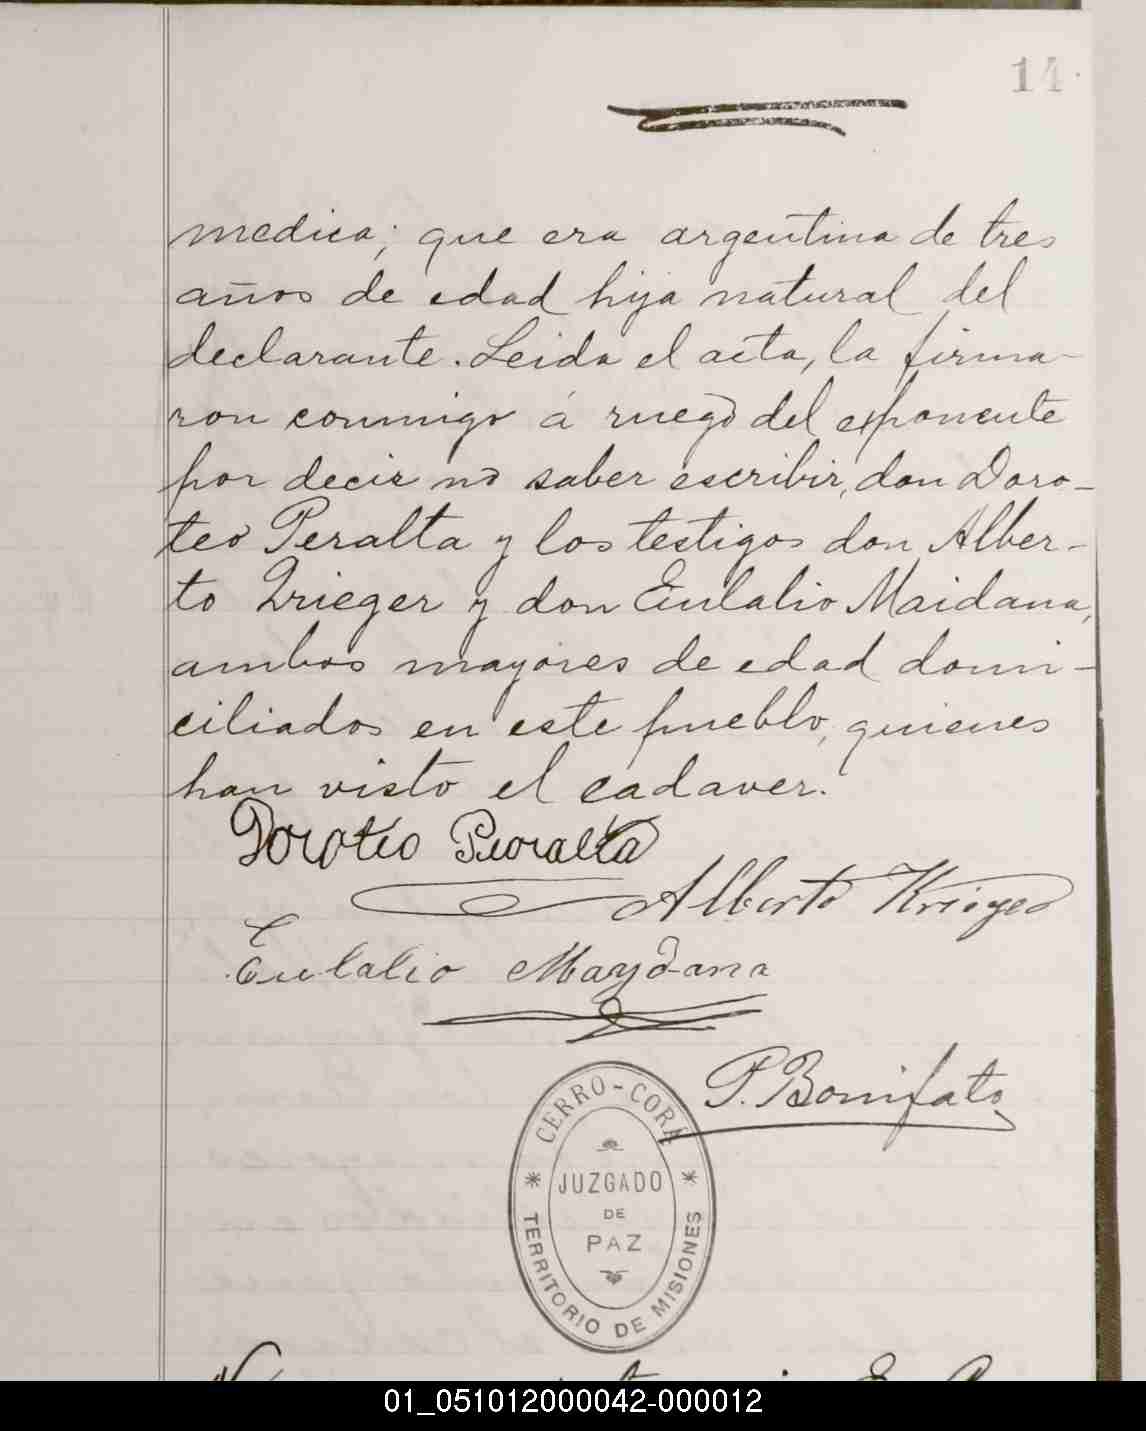 14
medica; que era argentina de tres
años de edad hija natural del
declarante. Leida el acta, la firma-
ron conmigo á ruego del esponente
por decir no saber escribir, don Doro-
teo Peralta y los testigos don Alber-
to Krieger y don Eulalio Maidana,
ambos mayores de edad domi-
ciliados en este pueblo, quienes
han visto el cadaver.
Doroteo Peoralta
Alberto Krieger
Eulalio Maydana
P. Bonifato
CERRO-CORÁ
JUZGADO
DE
PAZ
TERRITORIO DE MISIONES
01_051012000042-000012